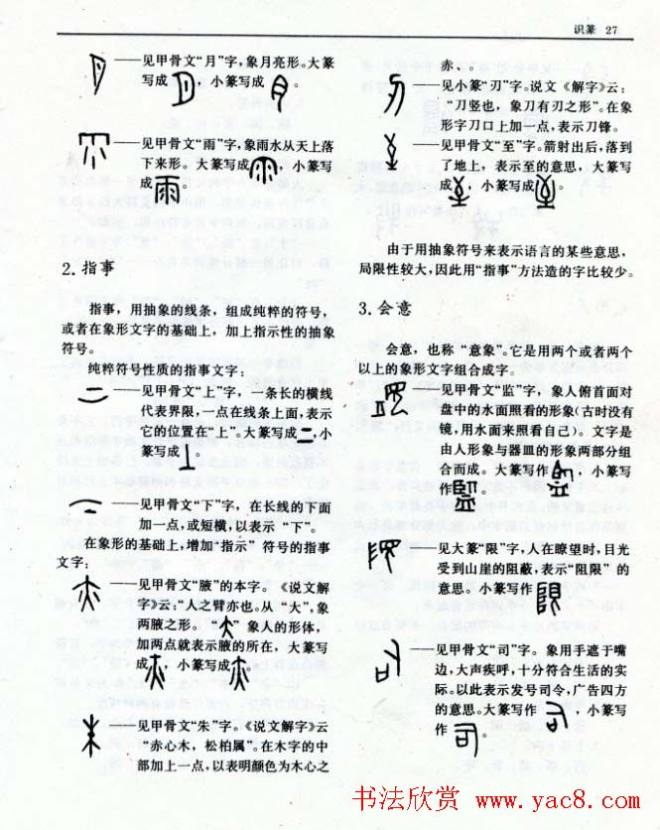 识篆 27
——见甲骨文“月”字,象月亮形。大篆
写成 , 小篆写成 。
——见甲骨文“雨”字,象雨水从天上落
下来形。大篆写成 ,小篆写
成 。
2. 指事
指事，用抽象的线条，组成纯粹的符号，
或者在象形文字的基础上，加上指示性的抽象
符号。
纯粹符号性质的指事文字：
——见甲骨文“上”字，一条长的横线
代表界限,一点在线条上面,表示
它的位置在“上”,大篆写成 ,小
篆写成 。
——见甲骨文“下”字，在长线的下面
加一点,或短横,以表示 “下”。
在象形的基础上,增加“指示” 符号的指事
文字：
——见甲骨文“腋”的本字。《说文解
字》云:“人之臂亦也。从 “大”,象
两腋之形。 “ ” 象人的形体,
加两点就表示腋的所在, 大篆写
成 , 小篆写成 。
——见甲骨文“朱”字。《说文解字》云
“赤心木，松柏属”。在木字的中
部加上一点,以表明颜色为木心之
赤、。
——见小篆“刃”字。说文《解字》云:
“刀竖也，象刀有刃之形”。在象
形字刀口上加一点,表示刀锋。
——见甲骨文“至”字。箭射出后,落到
了地上，表示至的意思，大篆写
成 , 小篆写成 。
由于用抽象符号来表示语言的某些意思,
局限性较大,因此用“指事”方法造的字比较少。
3. 会意
会意，也称 “意象”。它是用两个或者两个
以上的象形文字组合成字。
——见甲骨文“监”字，象人俯首面对
盘中的水面照看的形象(古时没有
镜,用水面来照看自己)。文字是
由人形象与器皿的形象两部分组
合而成。大篆写作 , 小篆写
作 。
——见大篆“限”字,人在瞭望时,目光
受到山崖的阻蔽,表示“阻限” 的
意思。小篆写作 。
——见甲骨文“司”字。象用手遮于嘴
边,大声疾呼,十分符合生活的实
际。以此表示发号司令,广告四方
的意思。大篆写作 , 小篆写
作 。
书法欣赏 www.yac8.com